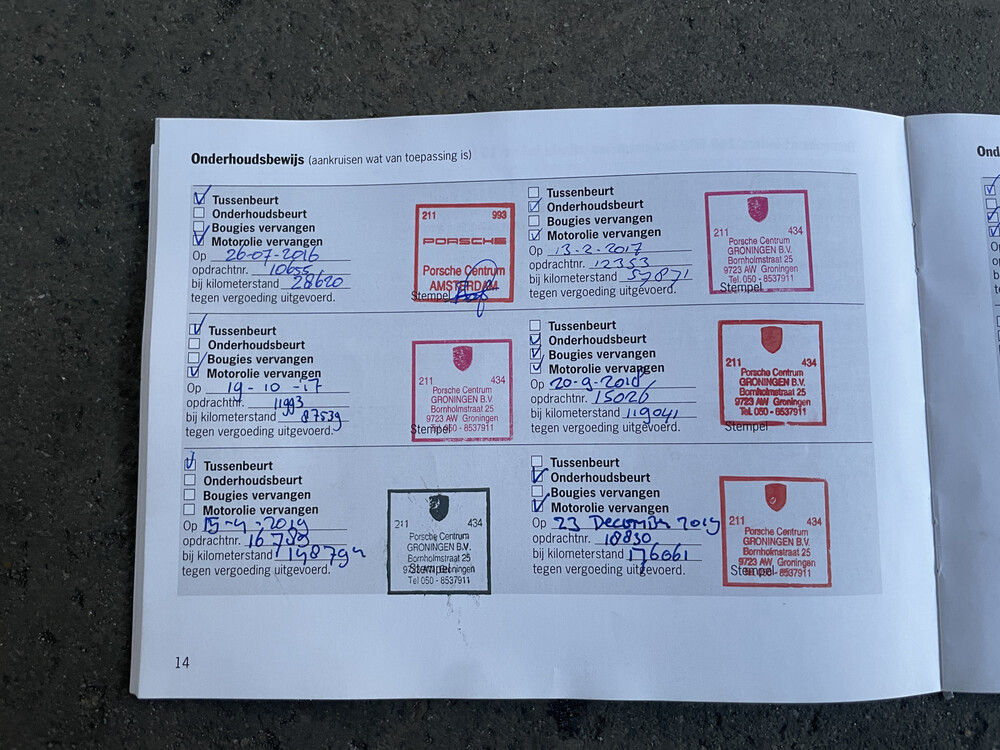 Onderhoudsbewijs (aankruisen wat van toepassing is)
Tussenbeurt
Onderhoudsbeurt
Bougies vervangen
Motorolie vervangen
Op 26-07-2016
opdrachtnr. 10655
bij kilometerstand 28620
tegen vergoeding uitgevoerd.
Stempel
211 993
PORSCHE
Porsche Centrum
AMSTERDAM
Tussenbeurt
Onderhoudsbeurt
Bougies vervangen
Motorolie vervangen
Op 13-2-2017
opdrachtnr. 12353
bij kilometerstand 57871
tegen vergoeding uitgevoerd.
Stempel
211 434
Porsche Centrum
GRONINGEN B.V.
Bornholmstraat 25
9723 AW Groningen
Tel. 050 - 8537911
Tussenbeurt
Onderhoudsbeurt
Bougies vervangen
Motorolie vervangen
Op 19-10-17
opdrachtnr.
bij kilometerstand 87539
tegen vergoeding uitgevoerd.
Stempel
211 434
Porsche Centrum
GRONINGEN B.V.
Bornholmstraat 25
9723 AW Groningen
Tel. 050 - 8537911
Tussenbeurt
Onderhoudsbeurt
Bougies vervangen
Motorolie vervangen
Op 20-9-2018
opdrachtnr. 15026
bij kilometerstand 119041
tegen vergoeding uitgevoerd.
Stempel
211 434
Porsche Centrum
GRONINGEN B.V.
Bornholmstraat 25
9723 AW Groningen
Tel. 050 - 8537911
Tussenbeurt
Onderhoudsbeurt
Bougies vervangen
Motorolie vervangen
Op 15-4-2019
opdrachtnr.
bij kilometerstand
tegen vergoeding uitgevoerd.
Stempel
211 434
Porsche Centrum
GRONINGEN B.V.
Bornholmstraat 25
9723 AW Groningen
Tel 050 - 8537911
Tussenbeurt
Onderhoudsbeurt
Bougies vervangen
Motorolie vervangen
Op 23 December 2019
opdrachtnr. 18830
bij kilometerstand 176061
tegen vergoeding uitgevoerd.
Stempel
211 434
Porsche Centrum
GRONINGEN B.V.
Bornholmstraat 25
9723 AW Groningen
Tel. 050 - 8537911
14
Ond